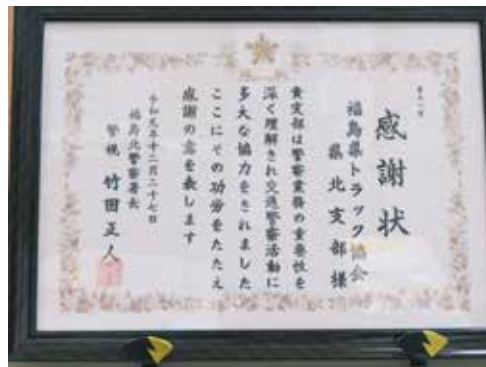 感謝状
福島県トラック協会
県北支部様
貴支部は警察業務の重要性を
深く理解され交通警察活動に
多大な協力をされました
ここにその功労をたたえ
感謝の意を表します
令和元年十二月二十七日
福島北警察署長
警視 竹田正人